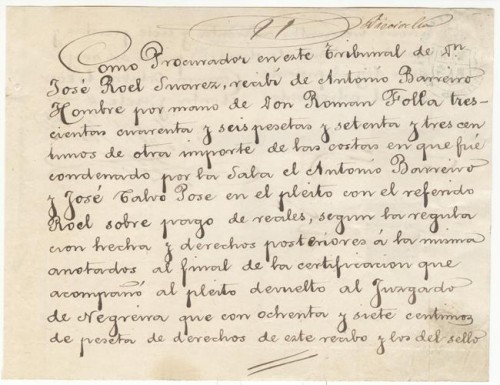 Como Procurador en este Tribunal de Dn
José Roel Suarez, recibí de Antonio Barreiro
Hombre por mano de Don Roman Folla tres-
cientas cuarenta y seis pesetas y setenta y tres cen
timos de otra importe de las costas en que fué
condenado por la Sala el Antonio Barreiro
y José Calvo Pose en el pleito con el referido
Roel sobre pago de reales, segun la regula
cion hecha y derechos posteriores á la misma
anotados al final de la certificacion que
acompañó al pleito devuelto al Juzgado
de Negreira que con ochenta y siete centimos
de peseta de derechos de este recibo y los del sello